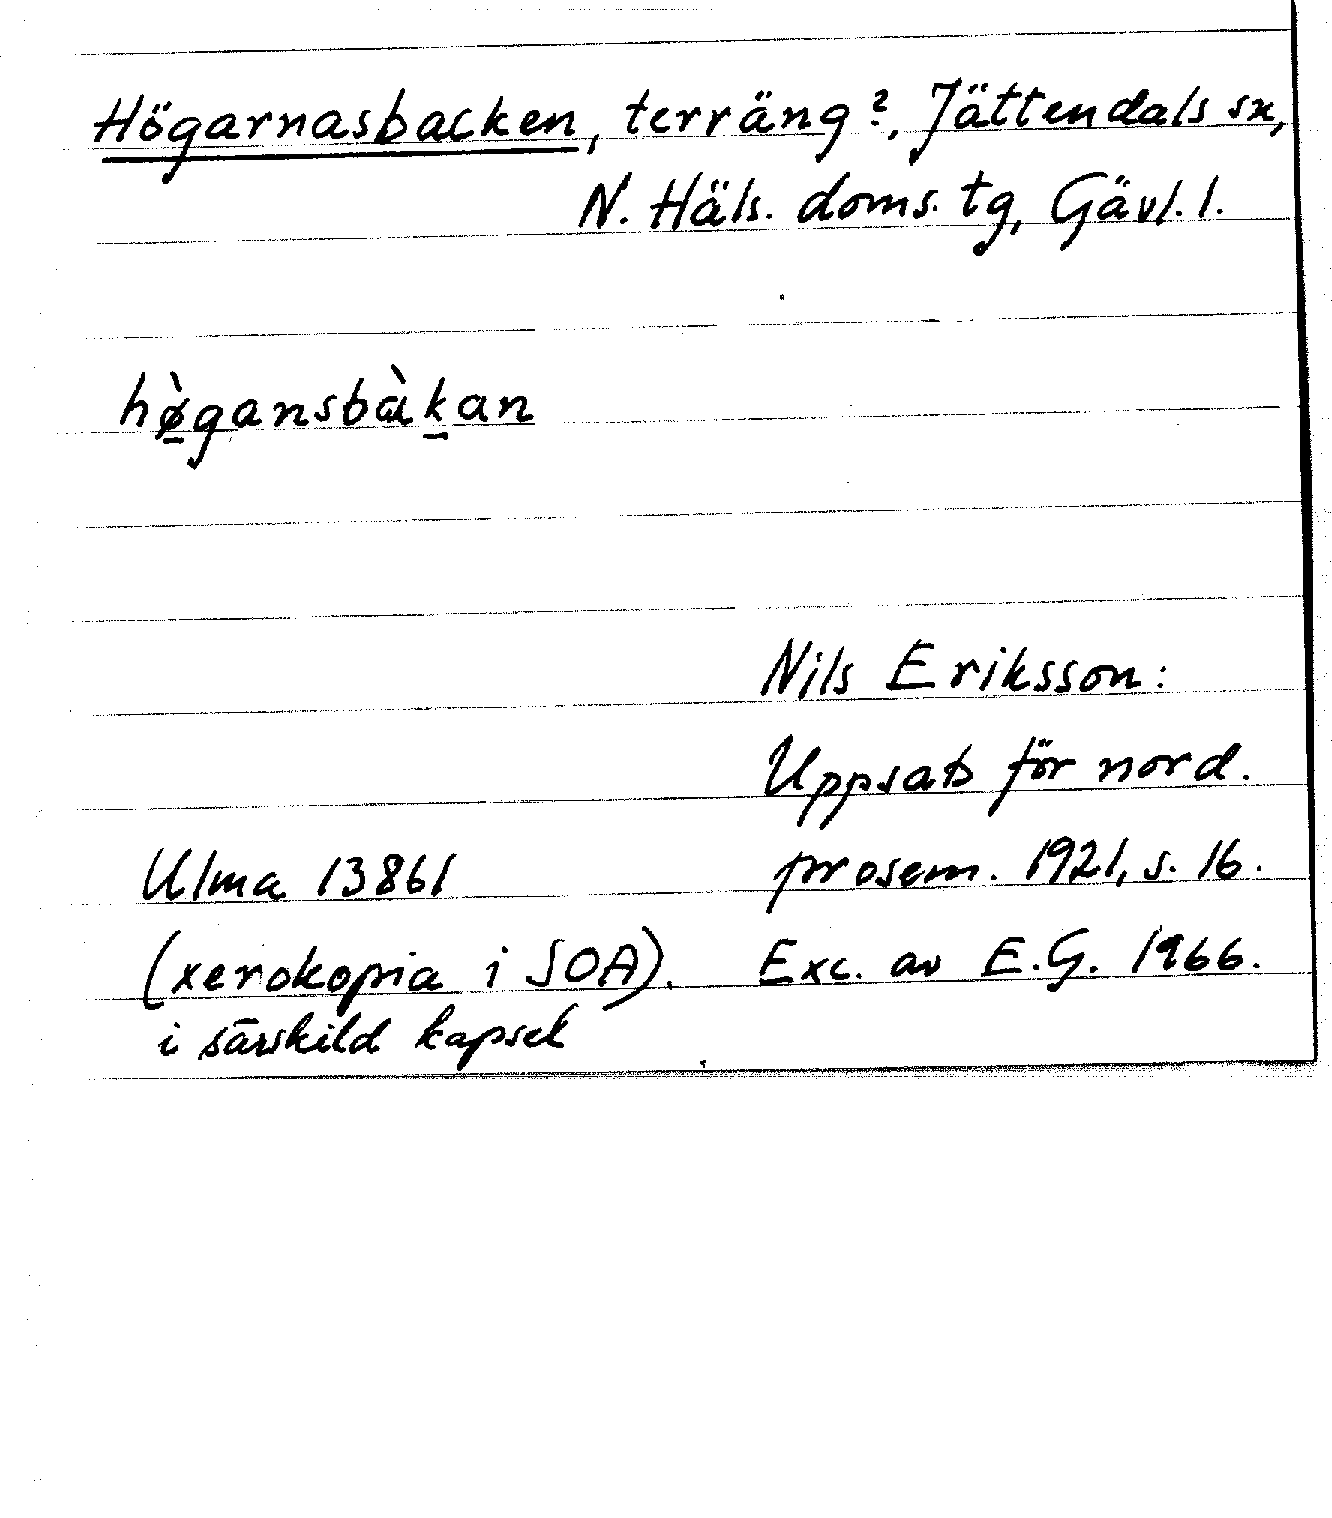 Högarnasbacken, terräng?, Jättendals sn,
N. Häls. doms. tg, Gävl. l.
hø̱̀gansbàḵan
Nils Eriksson:
Uppsats för nord.
Ulma 13861 prosem. 1921, s. 16.
(xerokopia i SOA). Exc. av E.G. 1966.
i särskild kapsel